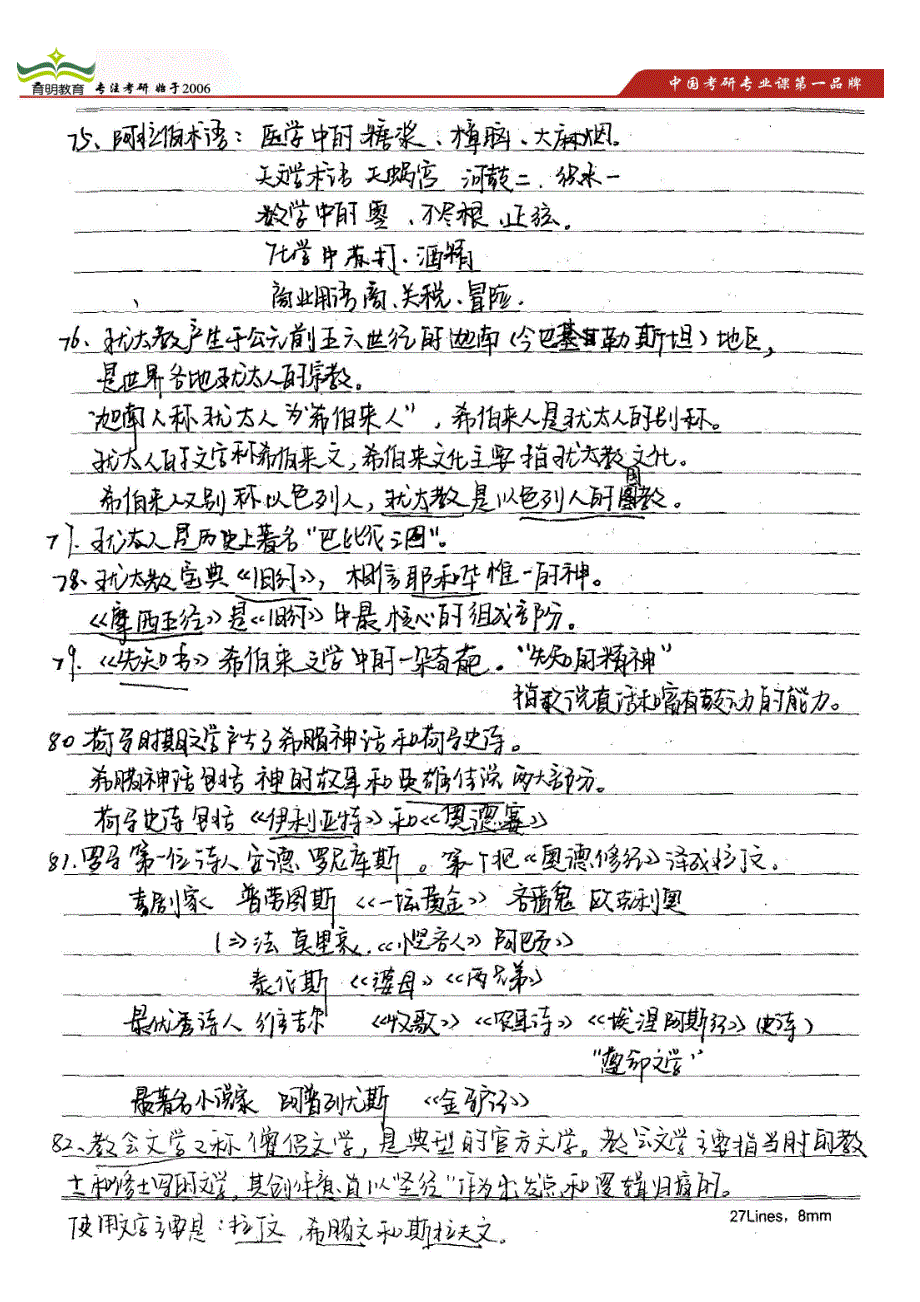 育明教育
专注考研 始于2006
中国考研专业课第一品牌
75、阿拉伯术语：医学中的糖浆、樟脑、大麻烟。
天文学术语 天蝎宫 河鼓二、织水一
数学中的零、不尽根、正弦。
化学中苏打、酒精
商业用语商、关税、冒险.
76、犹太教产生于公元前五六世纪的迦南(今巴基勒斯坦)地区，
是世界各地犹太人的宗教。
迦南人称犹太人为“希伯来人”，希伯来人是犹太人的别称。
犹太人的文字称希伯来文，希伯来文化主要指犹太教文化。
希伯来人又别称以色列人，犹太教是以色列人的国教。
77. 犹太人是历史上著名“巴比伦之囚”。
78、犹太教宝典《旧约》，相信耶和华惟一的神。
《摩西五经》是《旧约》中最核心的组成部分。
79.《先知书》希伯来文学中的一朵奇葩。“先知的精神”
指敢说真话和富有鼓动的能力。
80 荷马时期文学产生了希腊神话和荷马史诗。
希腊神话包括神的故事和英雄传说两大部分。
荷马史诗包括《伊利亚特》和《奥德赛》
81.罗马第一位诗人安德罗尼库斯。第一个把《奥德修纪》译成拉丁文。
喜剧家 普劳图斯《一坛黄金》吝啬鬼 欧克利奥
法 莫里哀.《悭吝人》阿巴贡
泰伦斯《婆母》《两兄弟》
最优秀诗人 维吉尔 《牧歌》《农事诗》《埃涅阿斯纪》(史诗)
“遵命文学”
最著名小说家 阿普列尤斯 《金驴记》
82、教会文学又称僧侣文学，是典型的官方文学。教会文学主要指当时的教
士和修士写的文学，其创作意旨以“圣经”作为出发点和逻辑归宿的。
使用文字主要是：拉丁文、希腊文和斯拉夫文。
27Lines，8mm